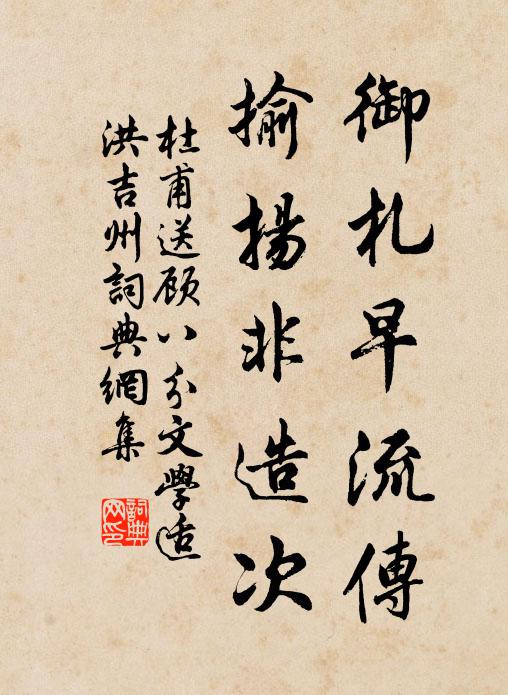 御札早流傳
揄揚非造次
杜甫送顾八分文學适
洪吉州詞典網集
詞典
网印